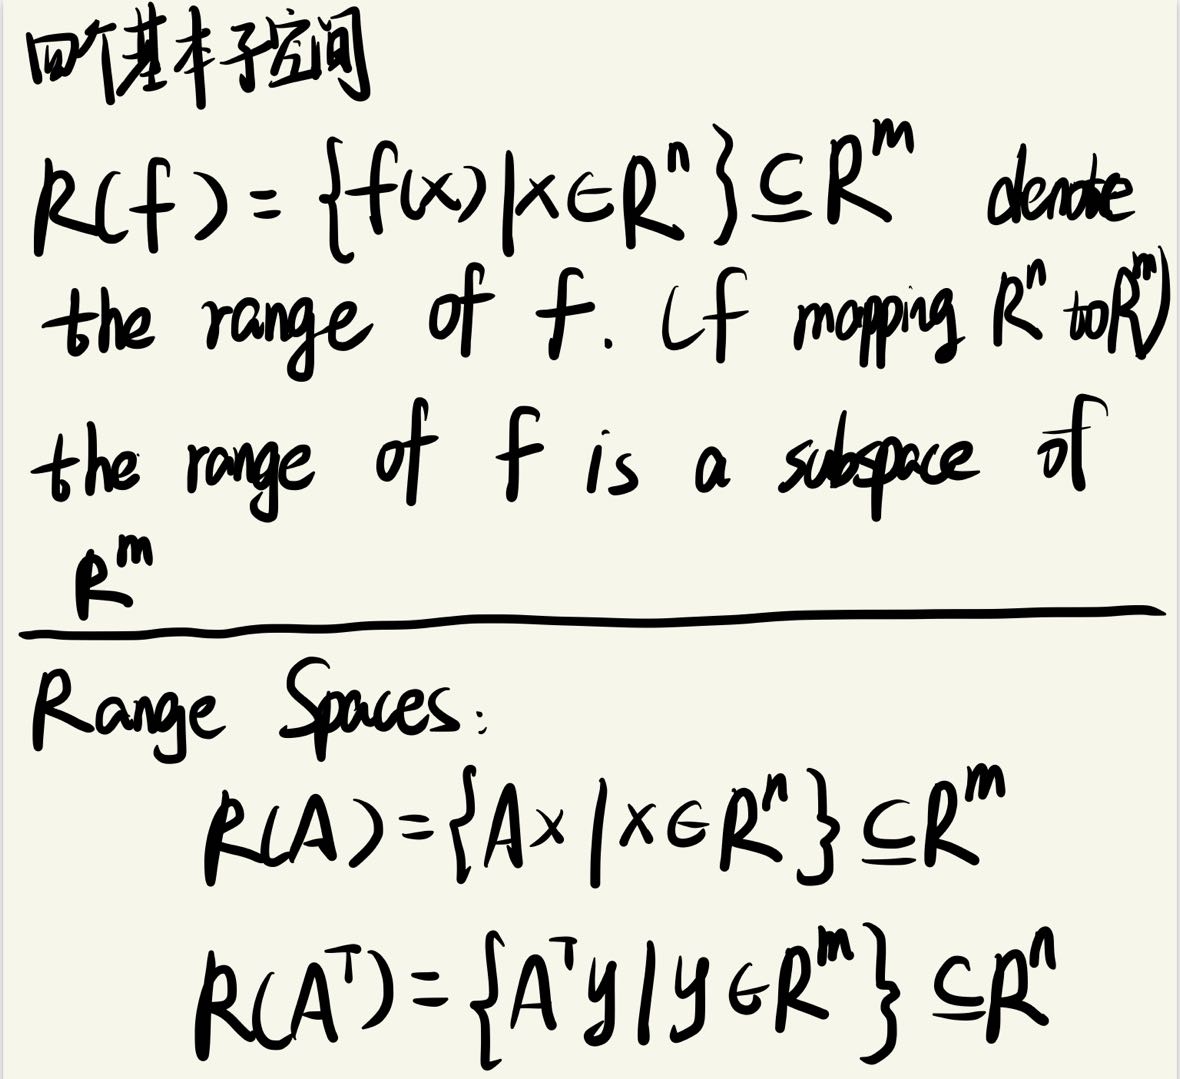 四个基本子空间
R(f) = {f(x)|x∈Rⁿ}⊆Rᵐ denote
the range of f. (f mapping Rⁿ to Rᵐ)
the range of f is a subspace of
Rᵐ
Range Spaces:
R(A) = {Ax|x∈Rⁿ}⊆Rᵐ
R(Aᵀ) = {Aᵀy|y∈Rᵐ}⊆Rⁿ